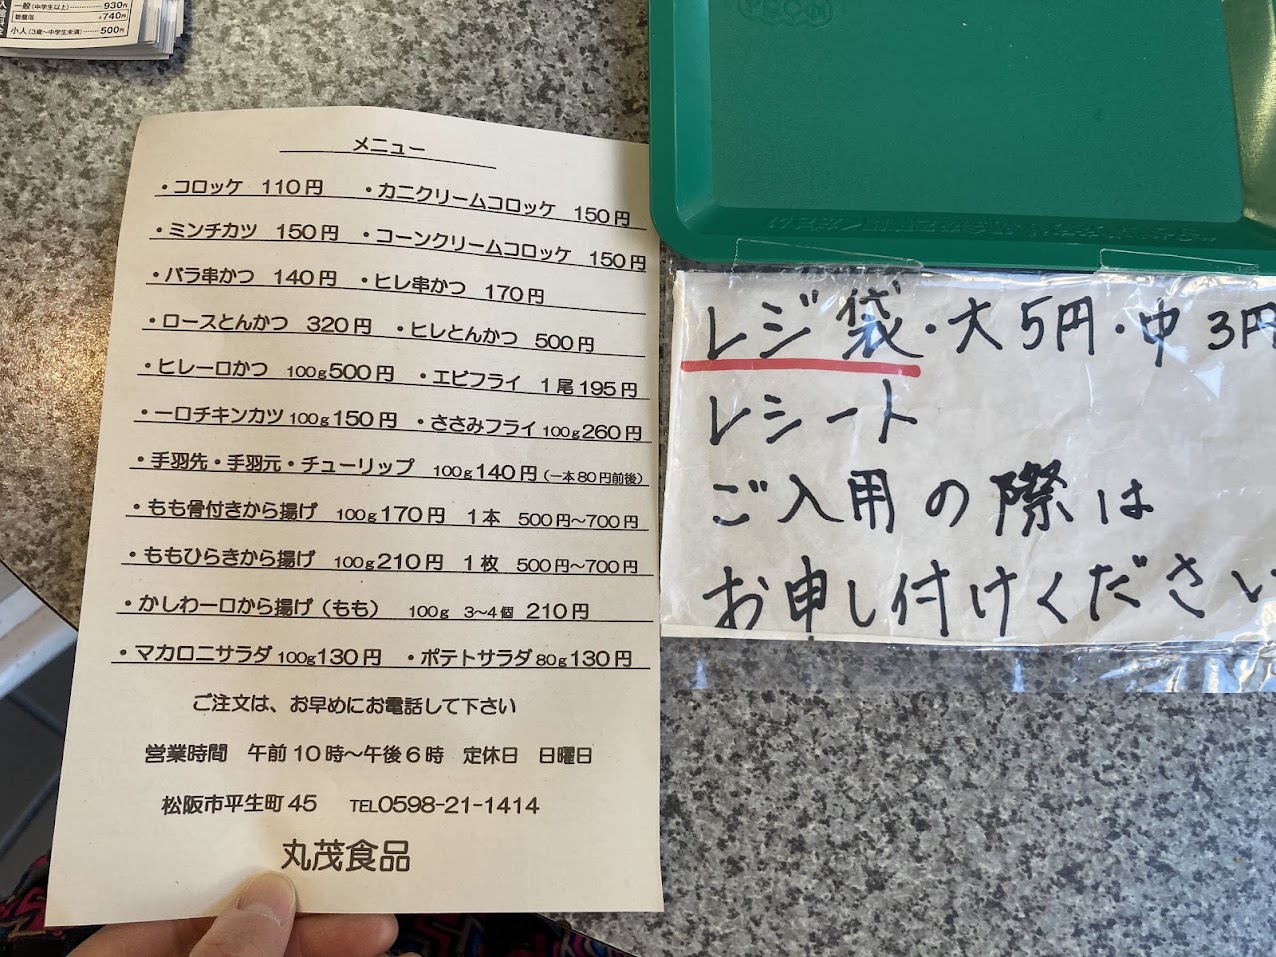 一般(中学生以上)……930円
岩盤浴 +740円
小人(3歳〜中学生未満)……500円
メニュー
・コロッケ 110円 ・カニクリームコロッケ 150円
・ミンチカツ 150円 ・コーンクリームコロッケ 150円
・バラ串かつ 140円 ・ヒレ串かつ 170円
・ロースとんかつ 320円 ・ヒレとんかつ 500円
・ヒレ一口かつ 100g500円 ・エビフライ 1尾195円
・一口チキンカツ100g150円 ・ささみフライ100g260円
・手羽先・手羽元・チューリップ 100g140円(一本80円前後)
・もも骨付きから揚げ 100g170円 1本 500円〜700円
・ももひらきから揚げ 100g210円 1枚 500円〜700円
・かしわ一口から揚げ(もも) 100g 3〜4個 210円
・マカロニサラダ100g130円 ・ポテトサラダ80g130円
ご注文は、お早めにお電話して下さい
営業時間 午前10時〜午後6時 定休日 日曜日
松阪市平生町45 TEL0598-21-1414
丸茂食品
レジ袋・大5円・中3円
レシート
ご入用の際は
お申し付けください